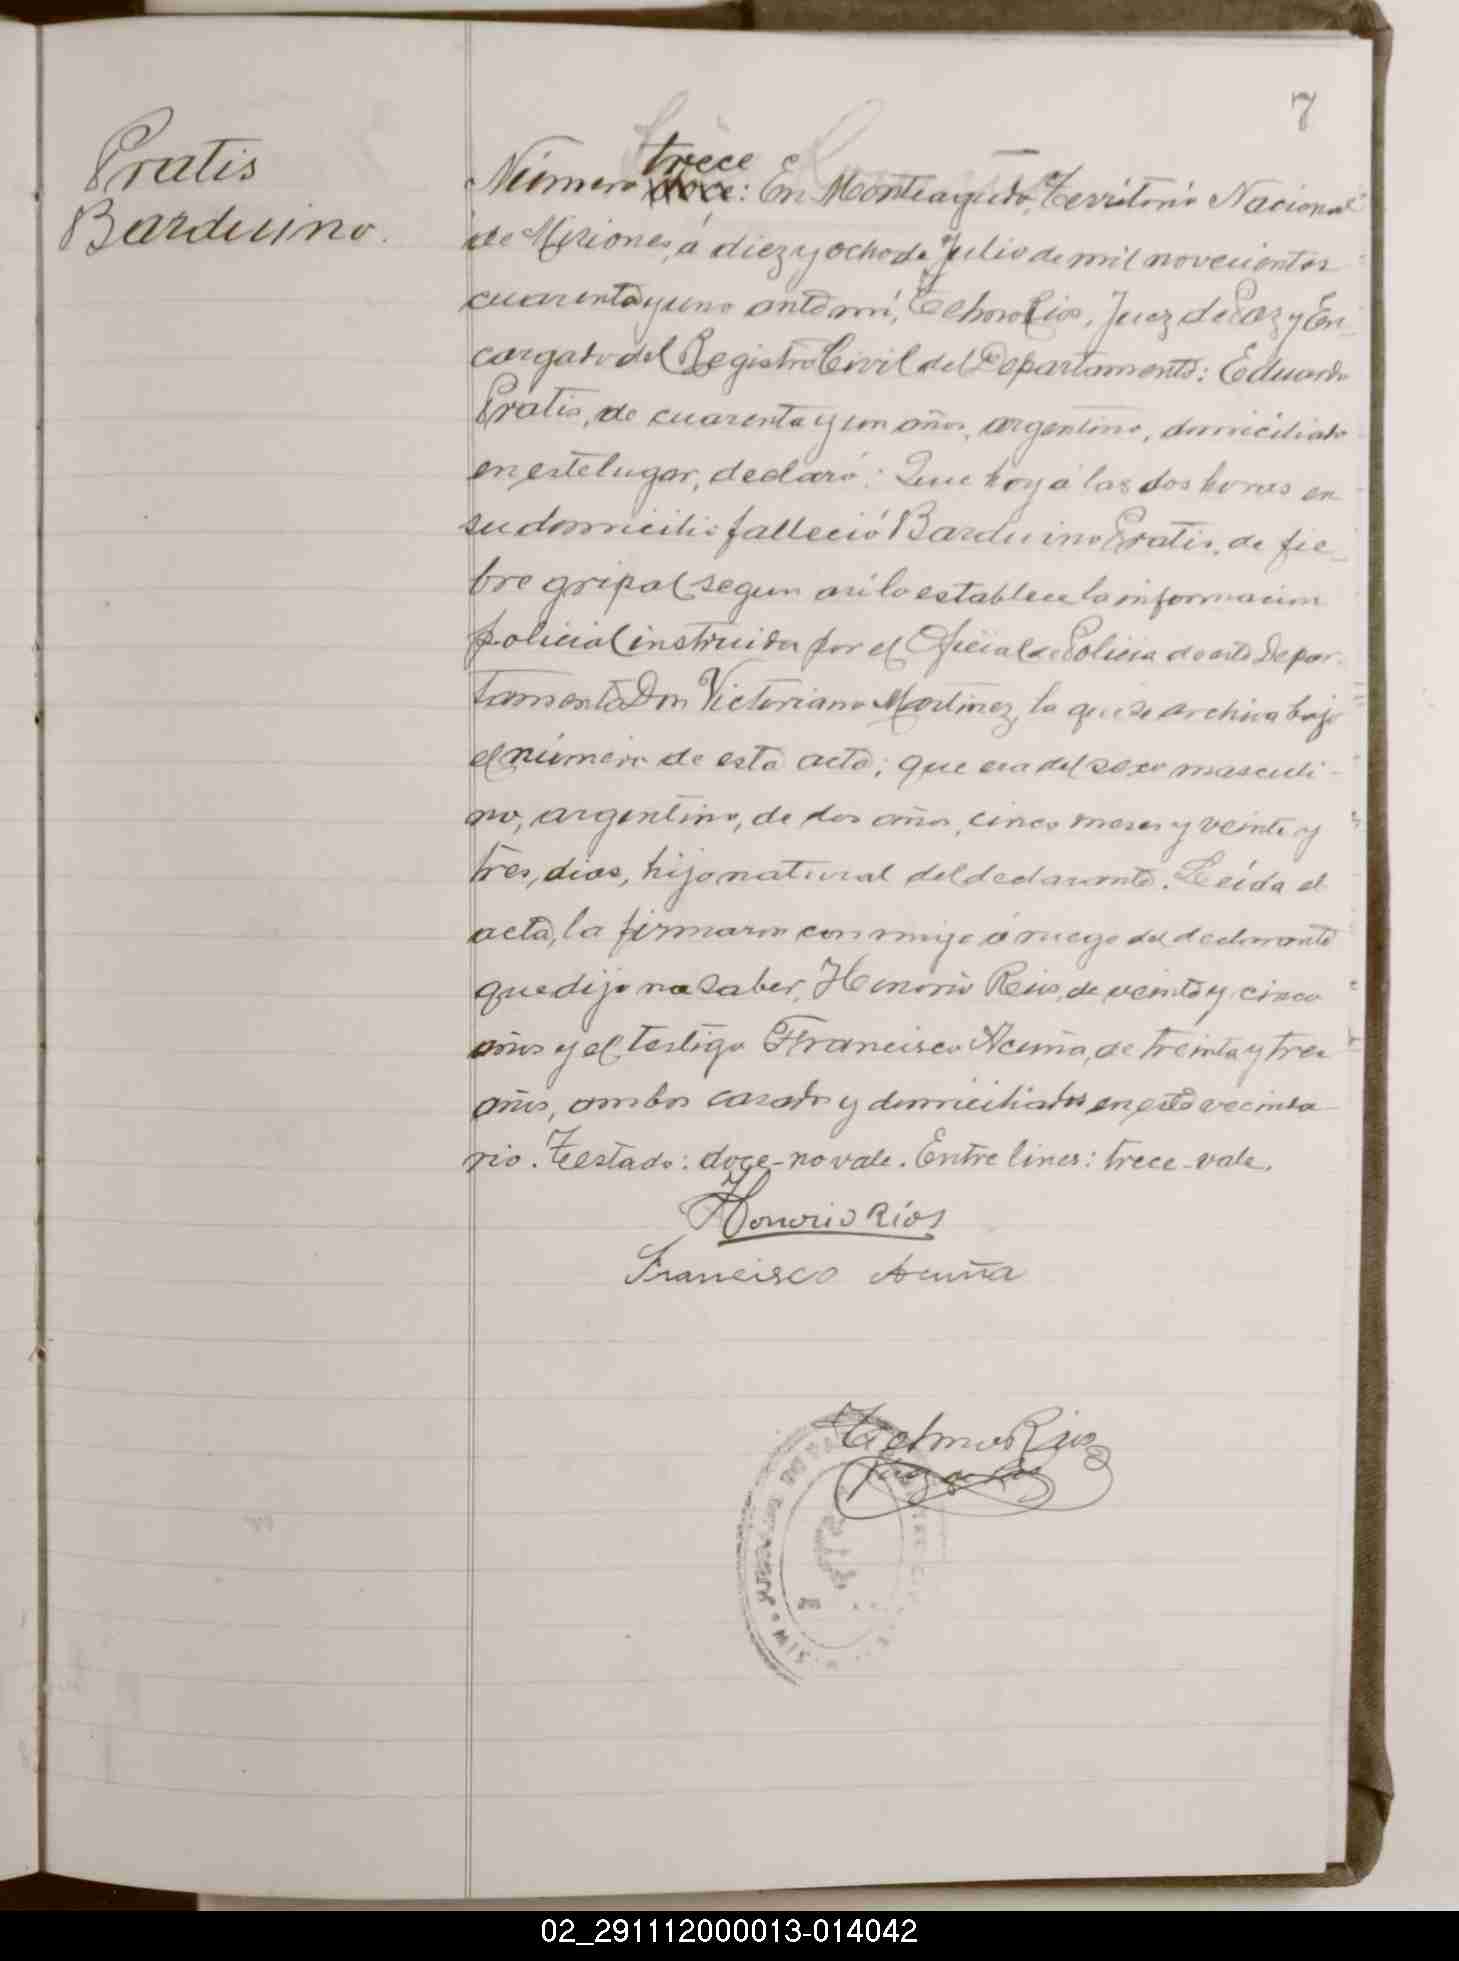 7
Pratis
Barduino.
trece
Número doce: En Monteagudo, Territorio Nacional
de Misiones, á diez y ocho de Julio de mil novecientos
cuarenta y uno ante mí, Telmo Rios, Juez de Paz y En-
cargado del Registro Civil del Departamento: Eduardo
Pratis, de cuarenta y un años, argentino, domiciliado
en este lugar, declaró: Que hoy á las dos horas en
su domicilio falleció Barduino Pratis, de fie-
bre gripal segun asi lo establece la informacion
policial instruida por el Oficial de Policia de este Depar-
tamento Don Victoriano Martinez, la que se archiva bajo
el número de esta acta; que era del sexo masculi-
no, argentino, de dos años, cinco meses y veinte y
tres, dias, hijo natural del declarante. Leída el
acta, la firmaron conmigo á ruego del declarante
que dijo no saber, Honorio Rios, de veinte y cinco
años y el testigo Francisco Acuña, de treinta y tres
años, ambos casados y domiciliados en este vecinda-
rio. Testado: doce-no vale. Entre lines: trece-vale.
Honorio Ríos
Francisco Acuña
Telmo Rios
Juez de Paz
02_291112000013-014042